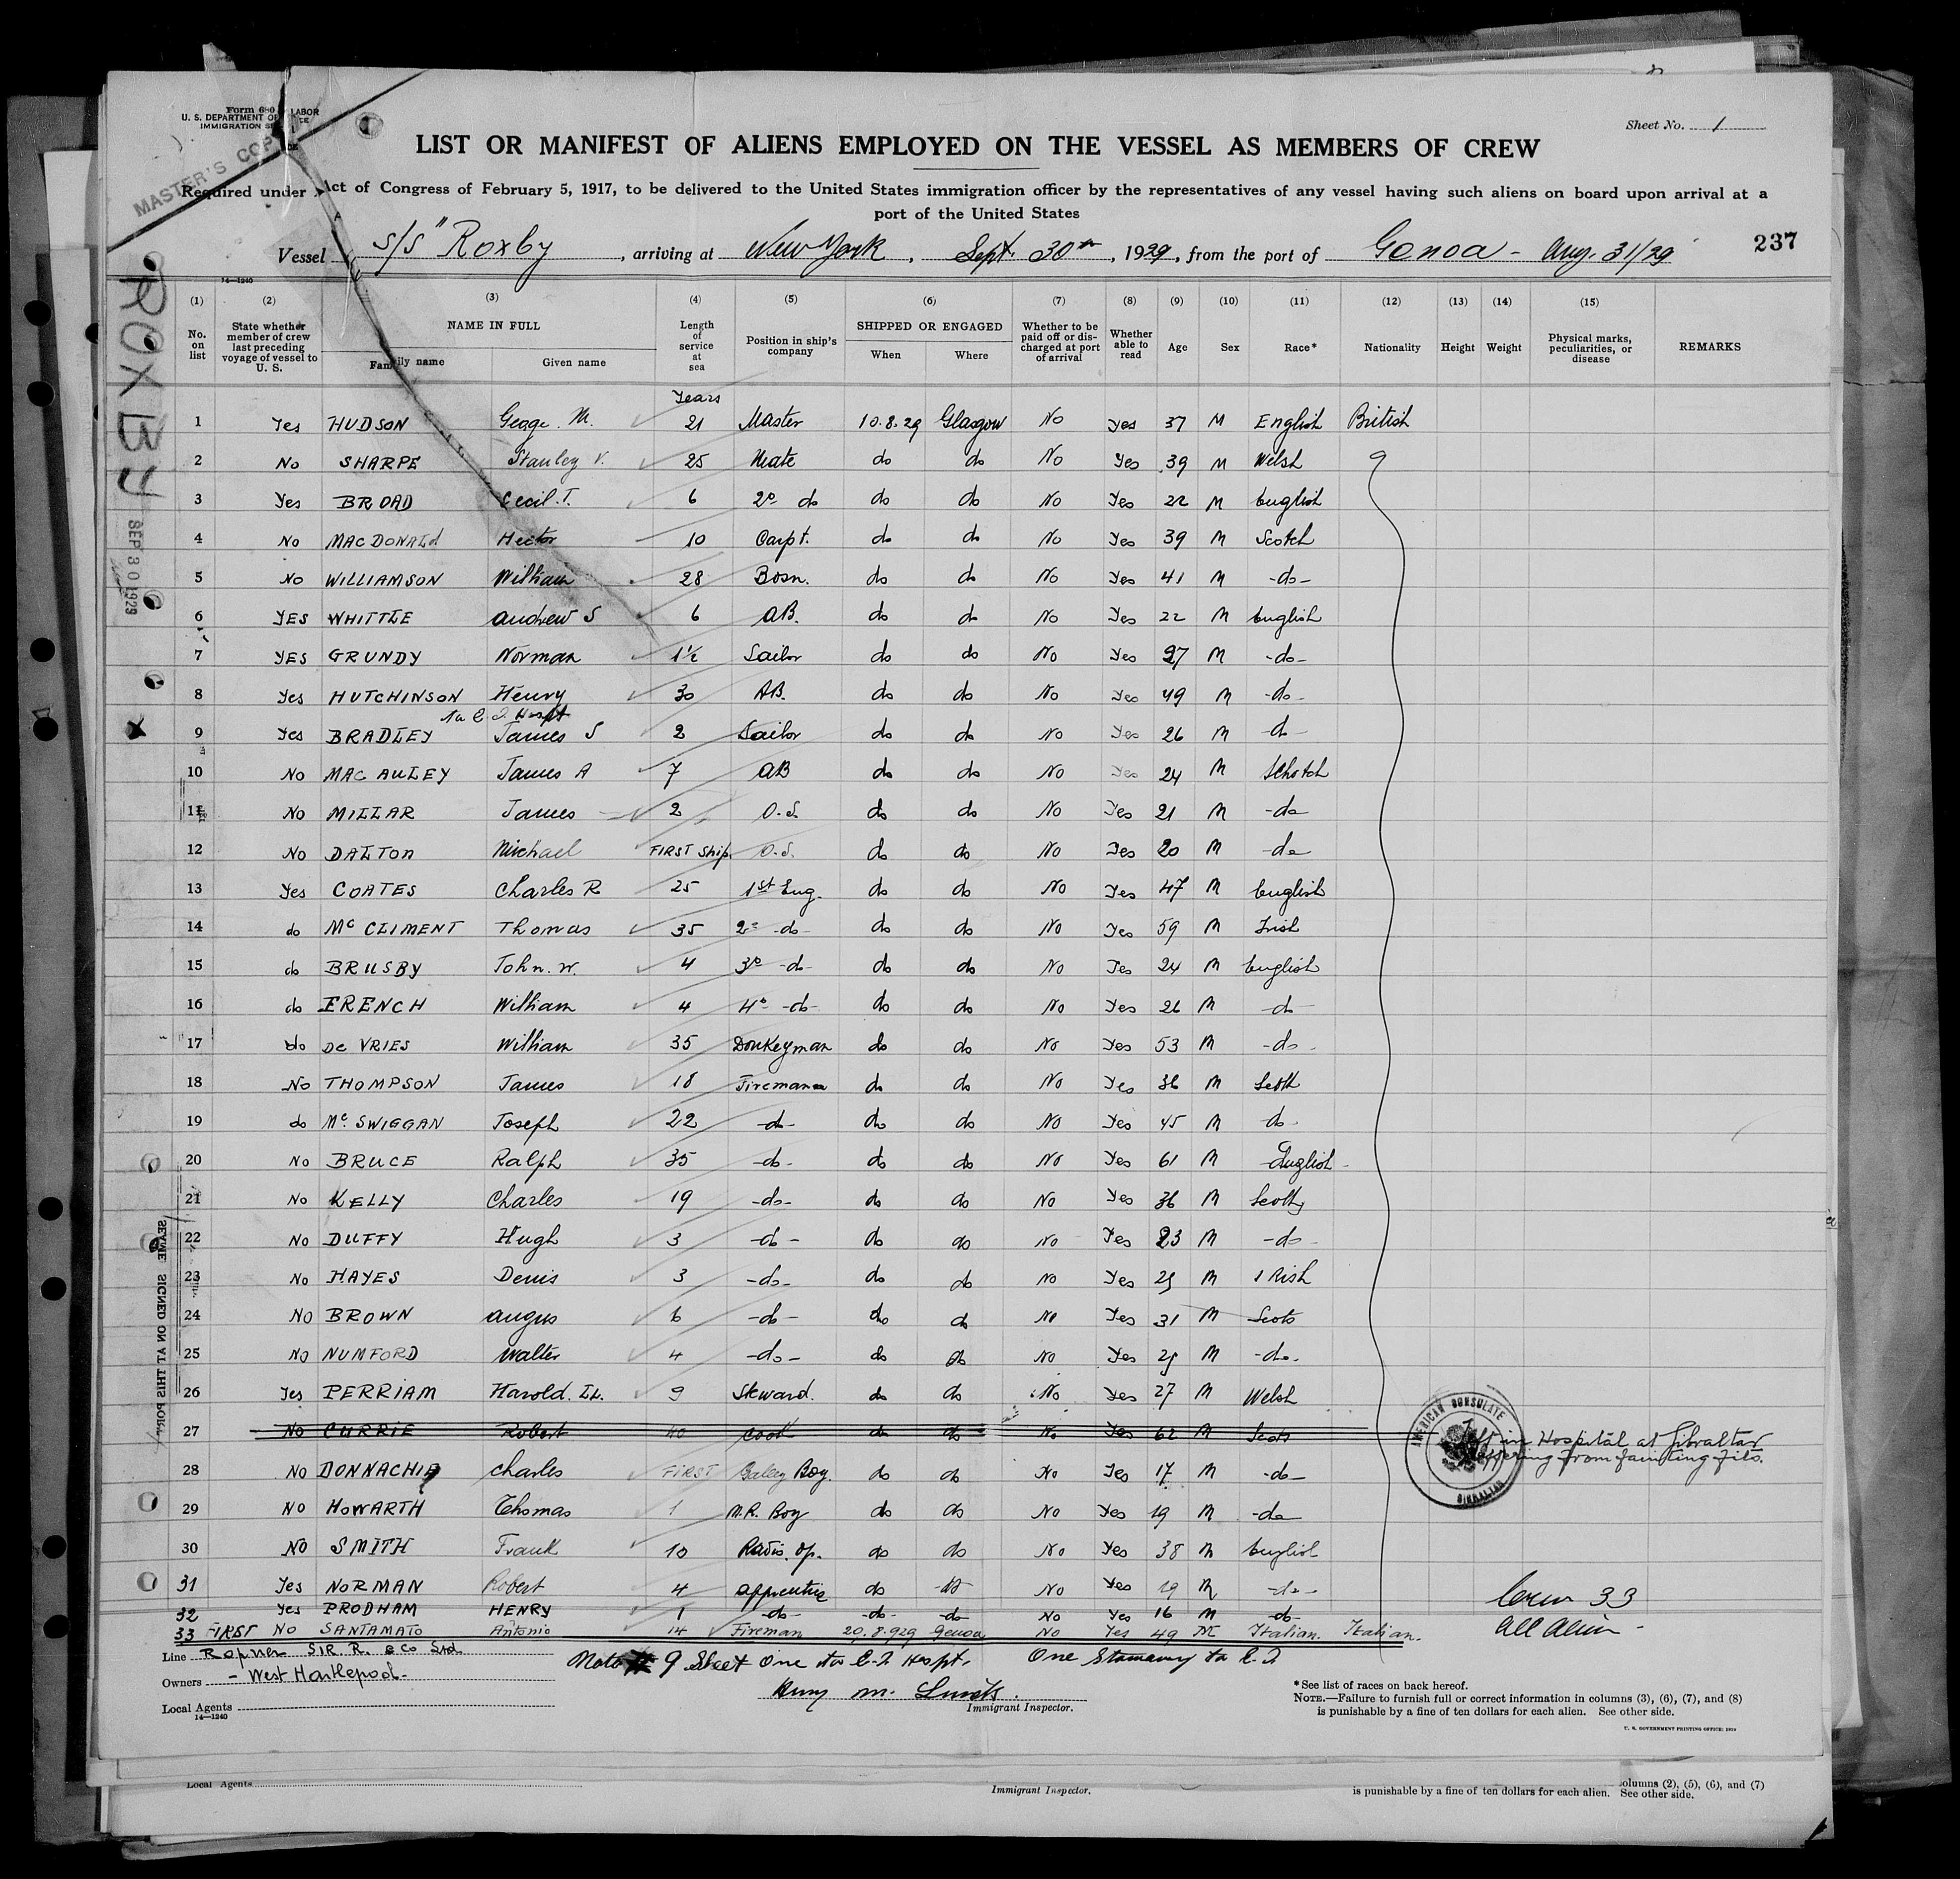 Form 680
U. S. DEPARTMENT OF LABOR
IMMIGRATION SERVICE
MASTER'S COPY
Sheet No. 1
LIST OR MANIFEST OF ALIENS EMPLOYED ON THE VESSEL AS MEMBERS OF CREW
Required under Act of Congress of February 5, 1917, to be delivered to the United States immigration officer by the representatives of any vessel having such aliens on board upon arrival at a
port of the United States
Vessel s/s "Roxby , arriving at New York , Sept. 30th , 1929, from the port of Genoa - Aug. 31/29
237
ROXBY
SEP 30 1929
14—1240
(1) (2) (3) (4) (5) (6) (7) (8) (9) (10) (11) (12) (13) (14) (15)
No. on list
State whether member of crew last preceding voyage of vessel to U. S.
NAME IN FULL
Family name Given name
Length of service at sea
Position in ship's company
SHIPPED OR ENGAGED
When Where
Whether to be paid off or discharged at port of arrival
Whether able to read
Age Sex Race* Nationality Height Weight
Physical marks, peculiarities, or disease
REMARKS
Years
1 Yes HUDSON Geoge. M. 21 Master 10.8.29 Glasgow No Yes 37 M English British
2 No SHARPE Stanley V. 25 Mate do do No Yes 39 M Welsh
3 Yes BROAD Cecil. T. 6 2º do do do No Yes 22 M English
4 No MACDONALd Hector 10 Carpt. do do No Yes 39 M Scotch
5 No WILLIAMSON William 28 Bosn. do do No Yes 41 M -do-
6 YES WHITTLE Andrew S 6 AB. do do No Yes 22 M English
7 YES GRUNDY Norman 1½ Sailor do do No Yes 27 M -do-
8 Yes HUTCHINSON Henry 30 AB. do do No Yes 49 M -do-
To E. I. Hospt
X 9 Yes BRADLEY James S 2 Sailor do do No Yes 26 M -do-
10 No MAC AULEY James A 7 AB do do No Yes 24 M Schotch
11 No MILLAR James 2 O.S. do do No Yes 21 M -do
12 No DALTON Michael FIRST Ship O.S. do do No Yes 20 M -do
13 Yes COATES Charles R 25 1st Eng. do do No Yes 47 M English
14 do Mc CLIMENT Thomas 35 2º -do- do do No Yes 59 M Irish
15 do BRUSBY John. W. 4 3º -do- do do No Yes 24 M English
16 do FRENCH William 4 4º -do- do do No Yes 26 M -do-
17 do De VRIES William 35 Donkeyman do do No Yes 53 M -do-
18 No THOMPSON James 18 Fireman do do No Yes 36 M Scoth
19 do Mc. SWIGGAN Joseph 22 -do- do do No Yes 45 M -do-
20 No BRUCE Ralph 35 -do- do do No Yes 61 M English
21 No KELLY Charles 19 -do- do do No Yes 36 M
22 No DUFFY Hugh 3 -do- do do No Yes 23 M -do-
23 No HAYES Denis 3 -do- do do No Yes M IRish
24 No BROWN Angus 6 -do- do do No Yes 31 M Scots
25 No NUMFORD Walter 4 -do- do do No Yes M -do-
26 Yes PERRIAM Harold. 9 Steward. do do No Yes 27 M Welsh
27 No CURRIE Robert 40 Cook do do No Yes 62 M Scots in Hospital at Gibraltar
suffering from fainting fits.
AMERICAN CONSULATE
GIBRALTAR
28 No DONNACHIE Charles FIRST Galley Boy. do do No Yes 17 M -do-
29 No HOWARTH Thomas 1 M.R. Boy do do No Yes 19 M -do
30 NO SMITH Frank 10 Radio. Op. do do No Yes 38 M English
31 Yes NORMAN Robert 4 Apprentice do do No Yes 19 M -do-
32 Yes PRODHAM HENRY 1 -do- -do- -do- No Yes 16 M -do-
33 FIRST No SANTAMATO Antonio 14 Fireman 20.8.929 Genoa No Yes 49 M Italian. Italian.
Crew 33
All Alien
SIGNED ON AT THIS PORT
Line Ropner SIR R. & Co Ltd.
Owners - West Hartlepool -
Local Agents
14—1240
Note # 9 Sheet One to E. I. Hospt. One to E. I
Immigrant Inspector.
*See list of races on back hereof.
NOTE.—Failure to furnish full or correct information in columns (3), (6), (7), and (8)
is punishable by a fine of ten dollars for each alien. See other side.
Local Agents
Immigrant Inspector.
columns (2), (5), (6), and (7)
is punishable by a fine of ten dollars for each alien. See other side.